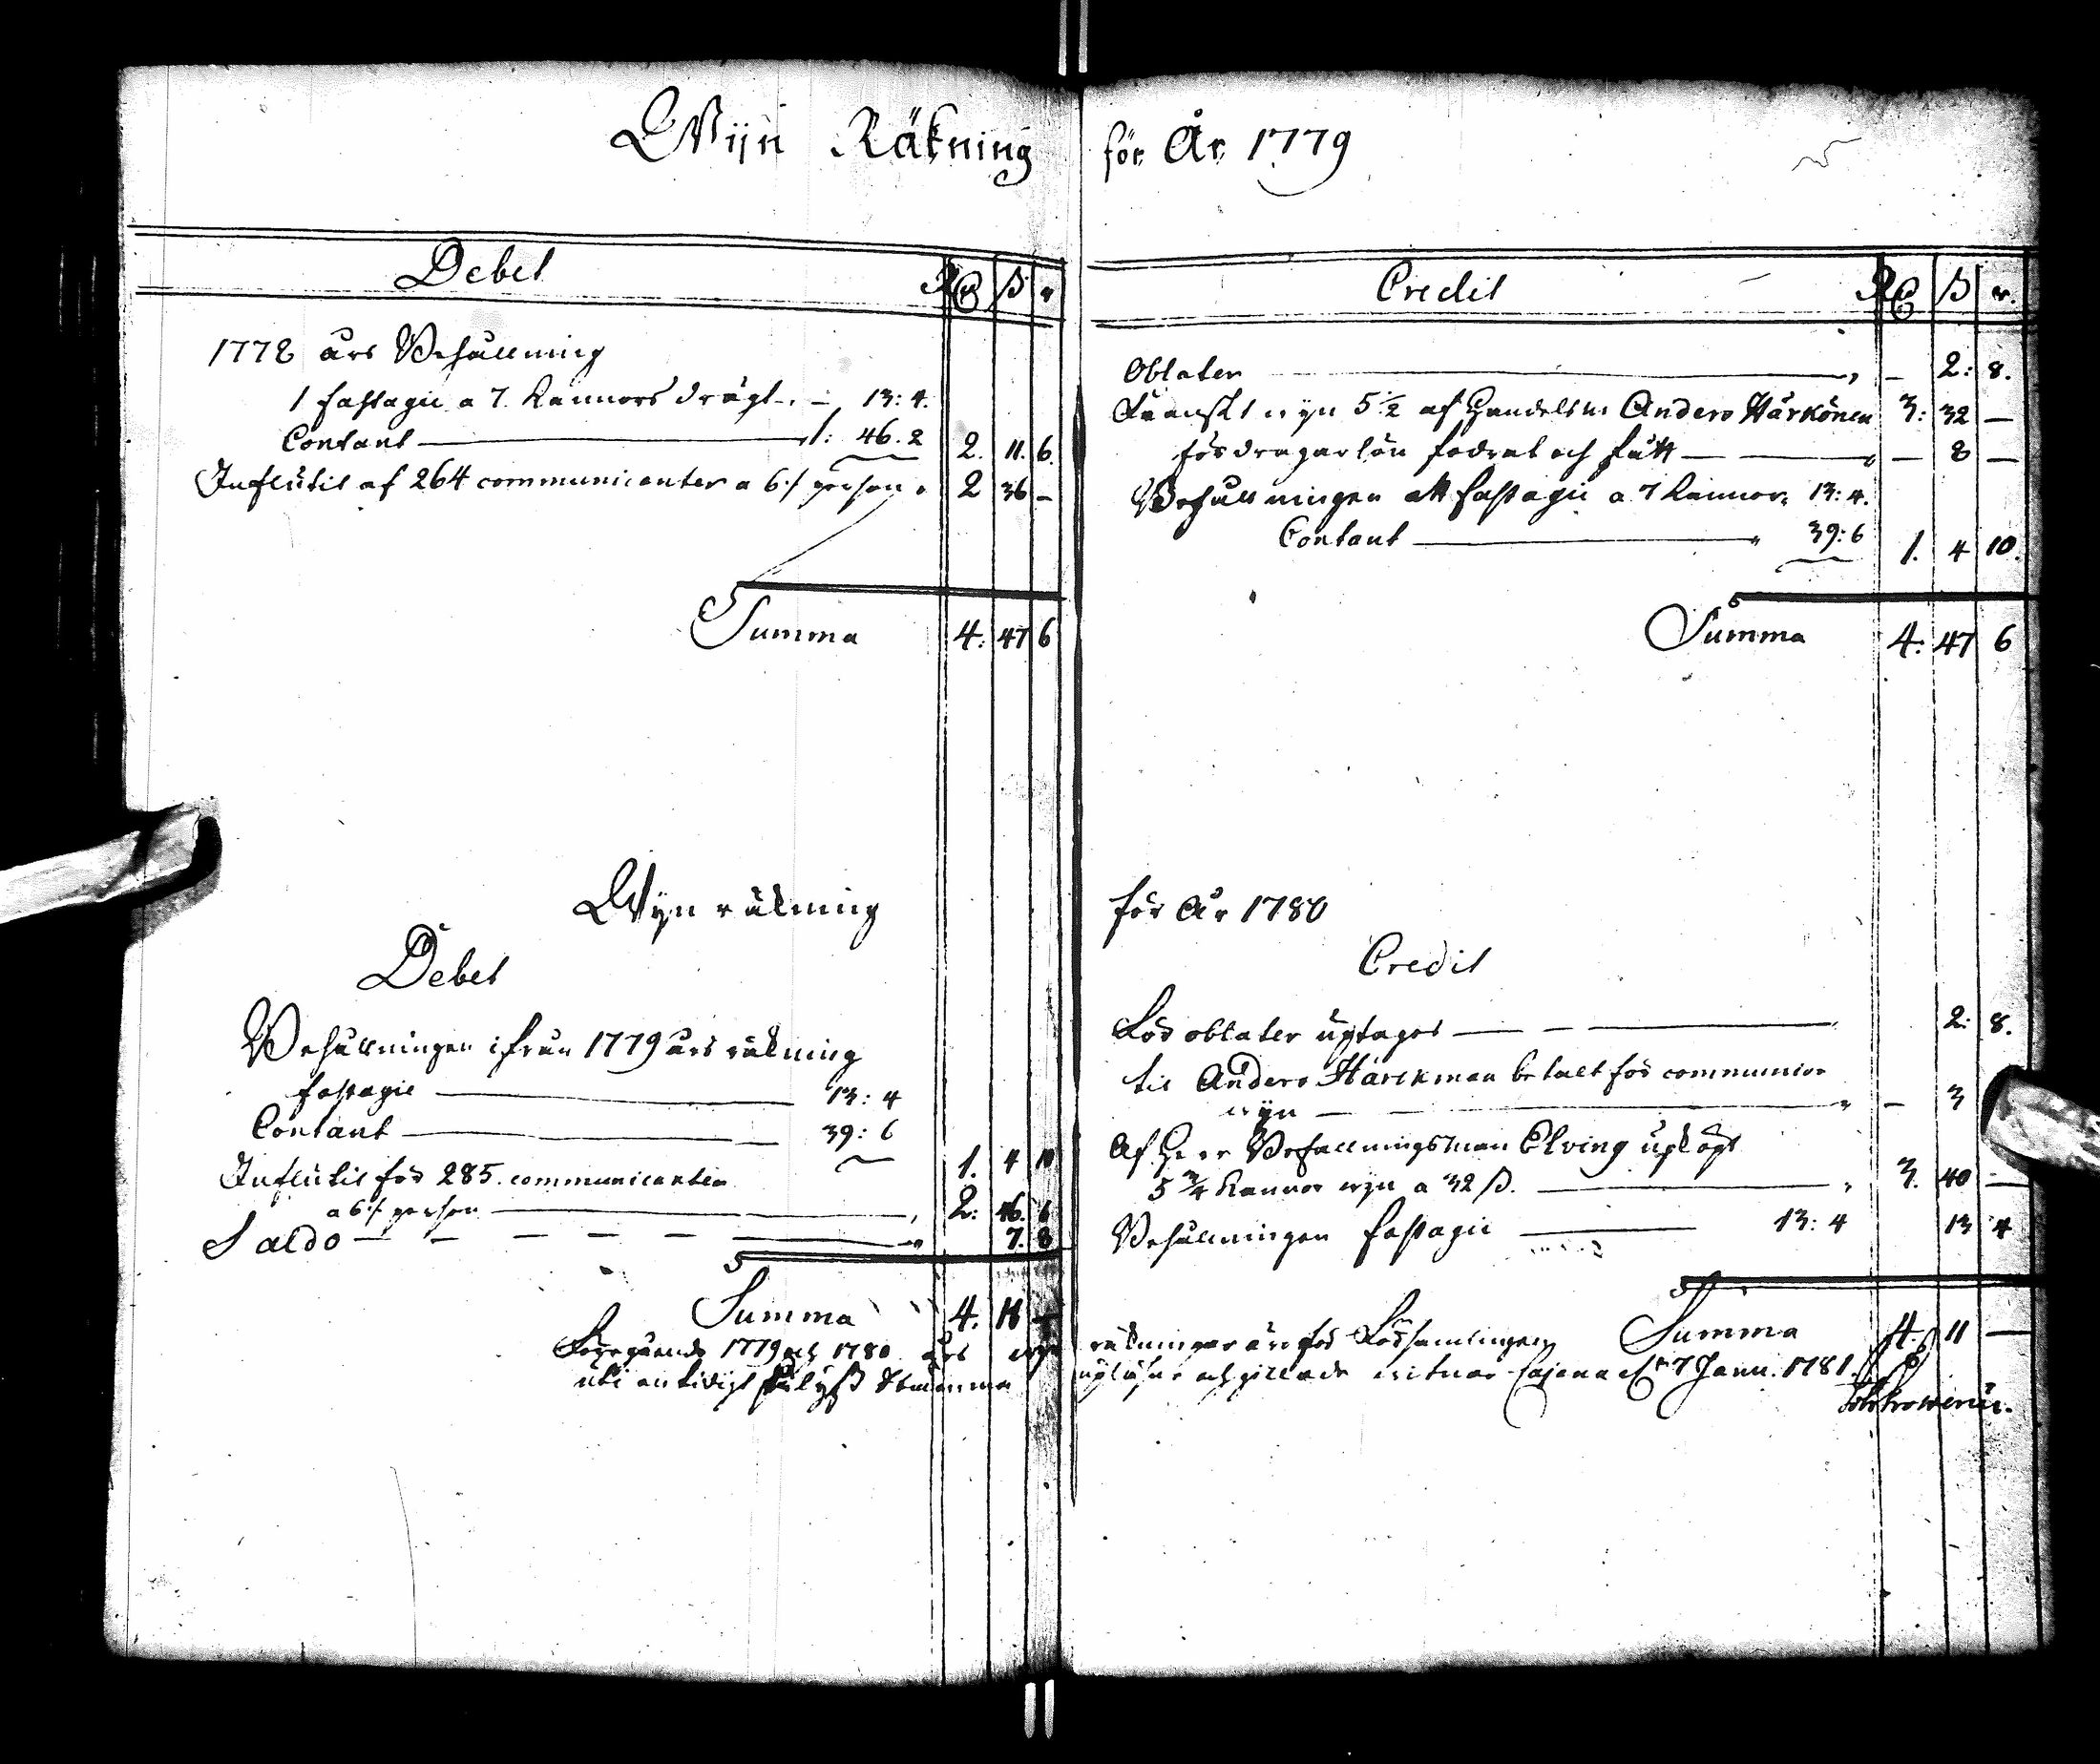 Wijn Räkning för År 1779
Debet Rd ß r
1778 års Behållning
1 fastagie a 7. Kannors drägt. – 13: 4.
Contant 1: 46. 2 2. 11. 6.
Influtit af 264 communicanter a 6 r/ person 2 36 –
Summa 4: 47 6
Credit Rd ß r.
Oblater – 2: 8.
Franskt wyn 5 1/2 af Handelsm Anders Härkönen 3: 32 –
för dragarlön fodrat och fått – 8 –
Behållningen ett fastagie a 7 Kannor 13: 4.
Contant 39: 6 1. 4 10.
Summa 4: 47 6
Wyn räkning för År 1780
Debet
Behållningen ifrån 1779 års räkning
fastagie 13: 4
Contant 39: 6 1. 4 10
Influtit för 285. communicanter
a 6 r/ person 2: 46. 6
Saldo 7. 8
Summa 4. 11 –
Credit
För oblater uptages 2: 8.
til Anders Härckman betalt för communion
wyn – 3
Af Herr Befallningsman Elving uplögt
5 3/4 Kannor wyn a 32 ß. 3. 40 –
Behållningen fastagie 13: 4 13 4
Summa 4: 11 –
Föregående 1779 och 1780 års wyn räkningar äro för Församlingen
uti en tidigt pålyst Stämma upläsne och gillade witnar Cajana d. 7 Janu. 1781.